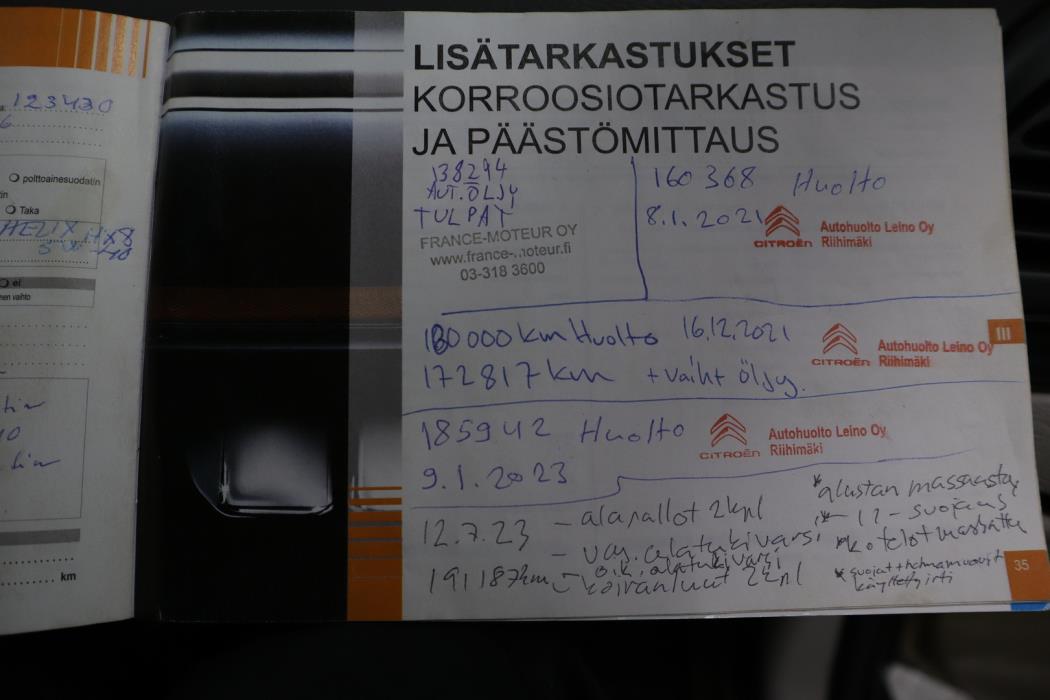 123430
6
polttoainesuodatin
tin
Taka
HELIX HX8
ei
nen vaihto
km
LISÄTARKASTUKSET
KORROOSIOTARKASTUS
JA PÄÄSTÖMITTAUS
138294
AUT.ÖLJY
TULPAT
FRANCE-MOTEUR OY
www.france-moteur.fi
03-318 3600
160 368 Huolto
8.1.2021
CITROËN
Autohuolto Leino Oy
Riihimäki
180 000 km Huolto 16.12.2021
172817 km + vaiht öljy.
CITROËN
Autohuolto Leino Oy
Riihimäki
III
185942 Huolto
9.1.2023
CITROËN
Autohuolto Leino Oy
Riihimäki
12.7.23
191187km
- alapallot 2kpl
- vas. alatukivarsi
- oik. alatukivarsi
- koiranluut 2kpl
* alustan massaus
* -11- suojaus
* kotelot massattu
* suojat + helmamuovit
käytetty irti
35